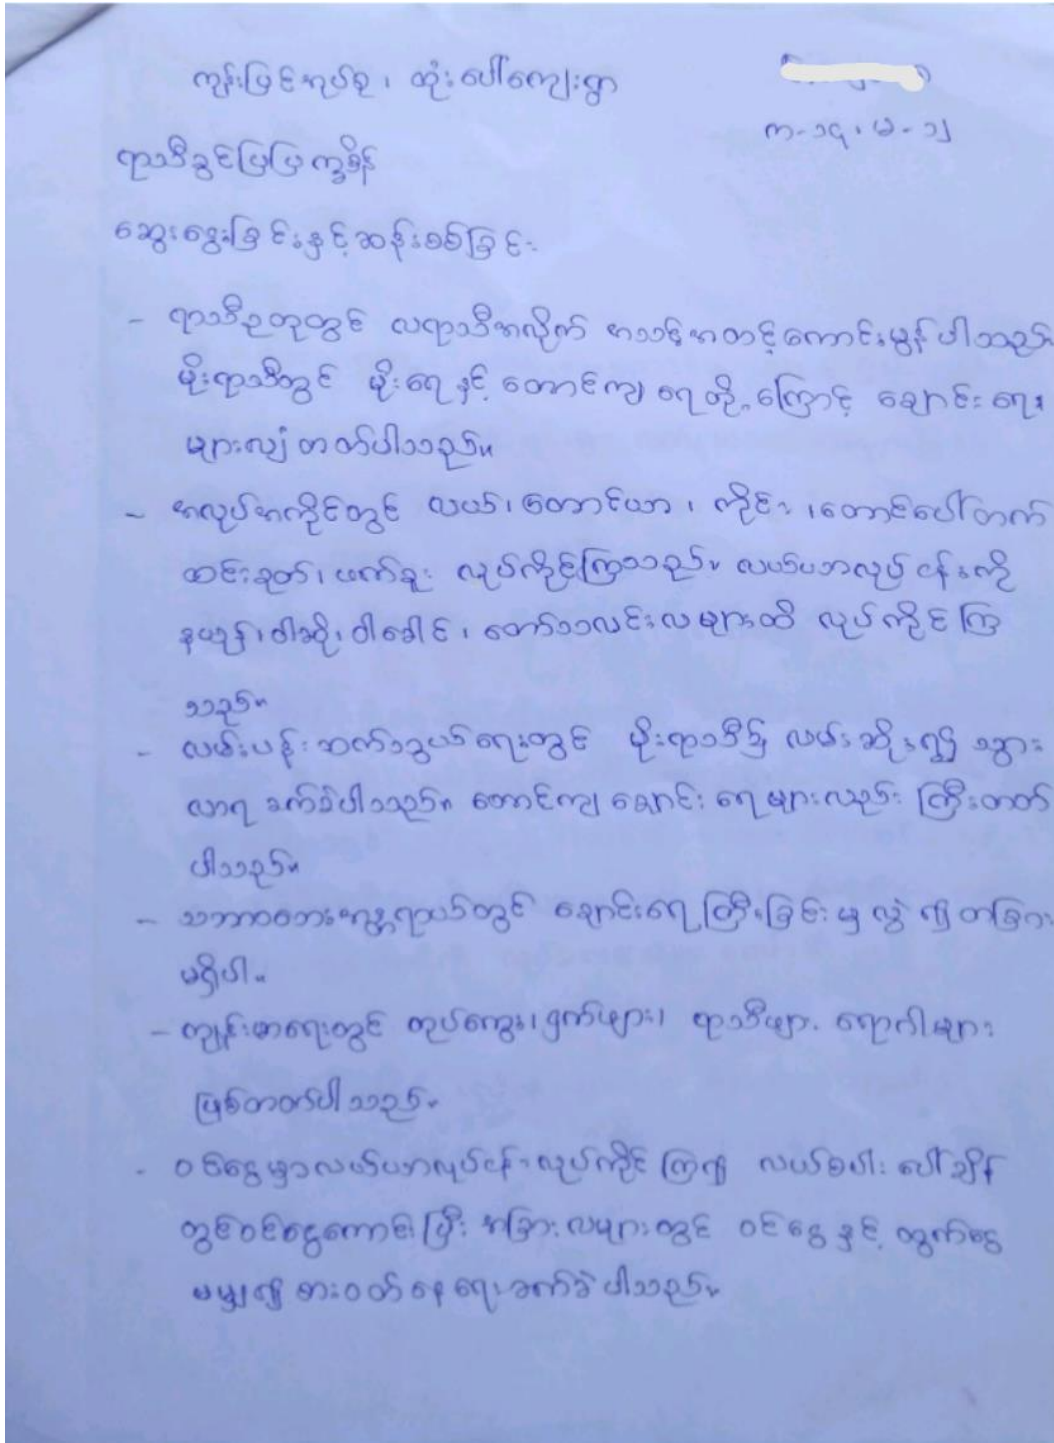 ကျွန်းမြင်အုပ်စု ၊ ထုံးပေါ်ကျေးရွာ
က - ၁၄ ၊ မ - ၁၂
ရာသီခွင်ပြပြက္ခဒိန်
ဆွေးနွေးခြင်းနှင့်ဆန်းစစ်ခြင်း
- ရာသီဥတုတွင် လရာသီအလိုက် အသင့်အတင့်ကောင်းမွန်ပါသည်။
မိုးရာသီတွင် မိုးရေနှင့် တောင်ကျရေတို့ကြောင့် ချောင်းရေ
များလျှံတတ်ပါသည်။
- အလုပ်အကိုင်တွင် လယ်၊ တောင်ယာ ၊ ကိုင်း ၊ တောင်ပေါ်တက်
ထင်းခုတ်၊ ဖက်ခူး လုပ်ကိုင်ကြသည်။ လယ်ယာလုပ်ငန်းကို
နယုန်၊ ဝါဆို၊ ဝါခေါင် ၊ တော်သလင်းလများထိ လုပ်ကိုင်ကြ
သည်။
- လမ်းပန်းဆက်သွယ်ရေးတွင် မိုးရာသီ၌ လမ်းဆိုး၍ သွား
လာရ ခက်ခဲပါသည်။ တောင်ကျချောင်းရေများလည်း ကြီးတတ်
ပါသည်။
- သဘာဝဘေးအန္တရာယ်တွင် ချောင်းရေကြီးခြင်းမှလွဲ၍ တခြား
မရှိပါ။
- ကျန်းမာရေးတွင် တုပ်ကွေး၊ ငှက်ဖျား၊ ရာသီဖျား ရောဂါများ
ဖြစ်တတ်ပါသည်။
- ဝင်ငွေမှာလယ်ယာလုပ်ငန်းလုပ်ကိုင်ကြ၍ လယ်စပါးပေါ်ချိန်
တွင်ဝင်ငွေကောင်းပြီး အခြားလများတွင် ဝင်ငွေနှင့် ထွက်ငွေ
မမျှ၍ စားဝတ်နေရေးခက်ခဲပါသည်။